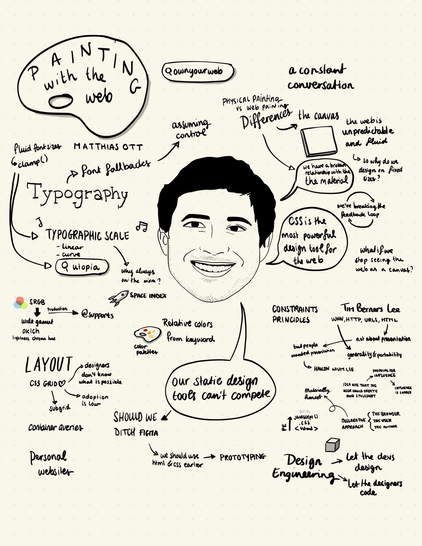 PAINTING
with the
web
ownyourweb
a constant
conversation
PHYSICAL PAINTING
vs web painting
Differences
the canvas
the web is
unpredictable
and fluid
assuming
control
Fluid font sizes
clamp()
MATTHIAS OTT
Font fallbacks
Typography
we have a broken
relationship with the
the material
so why do we
design on fixed
sizes?
we're breaking the
feedback loop
CSS is the
most powerful
design tool for
the web
what if we
stop seeing the
web as a canvas?
TYPOGRAPHIC SCALE
- linear
- curve
utopia
why always
on the mom?
SPACE INDEX
SRGB
Production
@supports
wide gamut
oklch
lightness chroma hue
color
palettes
Relative colors
From keyword
CONSTRAINTS
PRINCIPLES
Tim Berners Lee
WWW, HTTP, URLS, HTML
but people
wanted presentation
not about presentation
generality & portability
HAKON WIUM LIE
LAYOUT
CSS GRID
designers
don't know
what is possible
adoption
is low
subgrid
container queries
Personal
websites
Our static design
tools can't compete
SHOULD WE
DITCH FIGMA
we should use
html & css earlier
PROTOTYPING
Materially
honest
DECLARATIVE
APPROACH
THE BROWSER
THE USER
THE AUTHOR
JAVASCRIPT
CSS
<html>
Design
Engineering
Let the devs
design
Let the designers
code